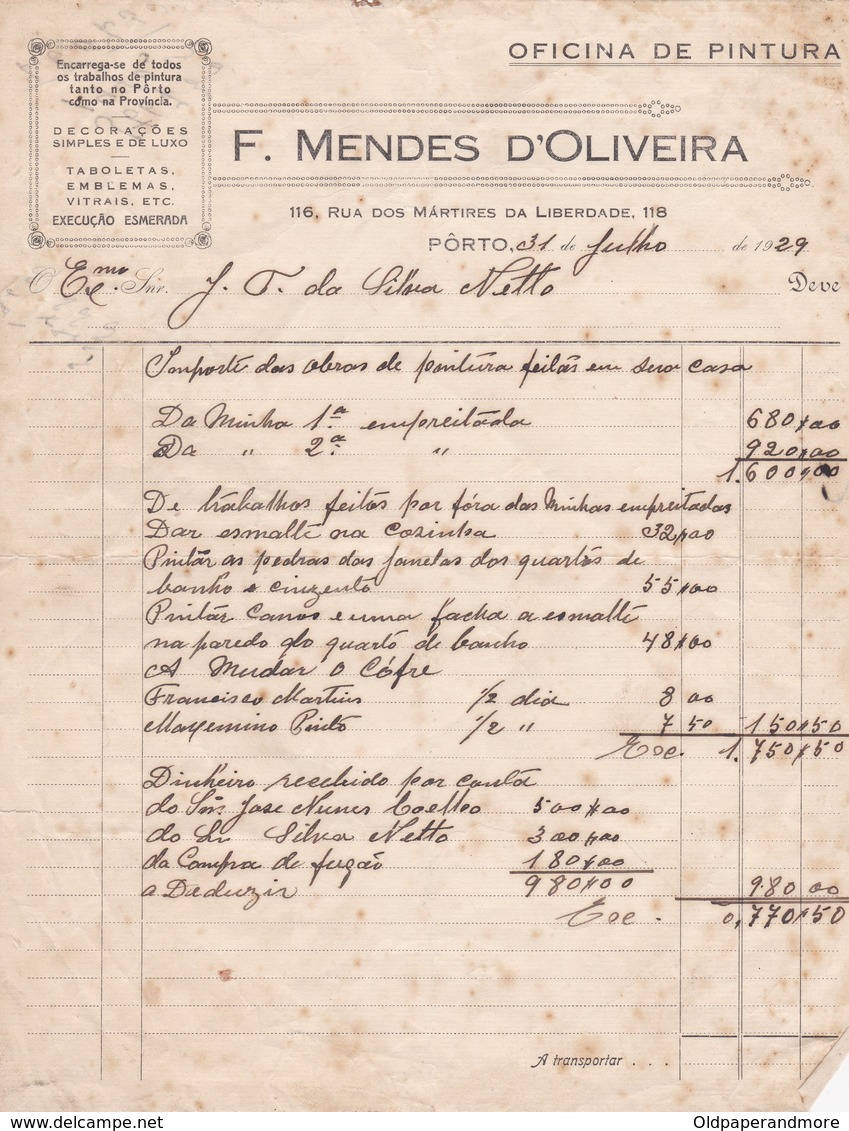 OFICINA DE PINTURA
Encarrega-se de todos
os trabalhos de pintura
tanto no Pôrto
como na Província.
DECORAÇÕES
SIMPLES E DE LUXO
TABOLETAS,
EMBLEMAS,
VITRAIS, ETC.
EXECUÇÃO ESMERADA
F. MENDES D'OLIVEIRA
116, RUA DOS MÁRTIRES DA LIBERDADE, 118
PÔRTO, 31 de Julho de 1929
O Exmo. Snr. J. T. da Silva Netto Deve
Importe das obras de pintura feitas em sua casa
Da Minha 1.ª empreitada 680$00
Da " 2.ª " 920$00
1.600$00
De trabalhos feitos por fóra das Minhas empreitadas
Dar esmalte na Cozinha 32$00
Pintar as pedras das janelas dos quartos de
banho e cinzento 55$00
Pintar Canos e uma facha a esmalte
na parede do quarto de banho 48$00
A Mudar o Cófre
Francisco Martins 1/2 dia 8 00
Maxemino Pinto 1/2 " 7 50 150$50
Esc. 1.750$50
Dinheiro recebido por conta
do Snr. Jose Nunes Coelho 500$00
do Sr Silva Netto 300$00
da Compra de fugão 180$00
a Deduzir 980$00 980 00
Esc. 0,770$50
A transportar . . .
Oldpaperandmore